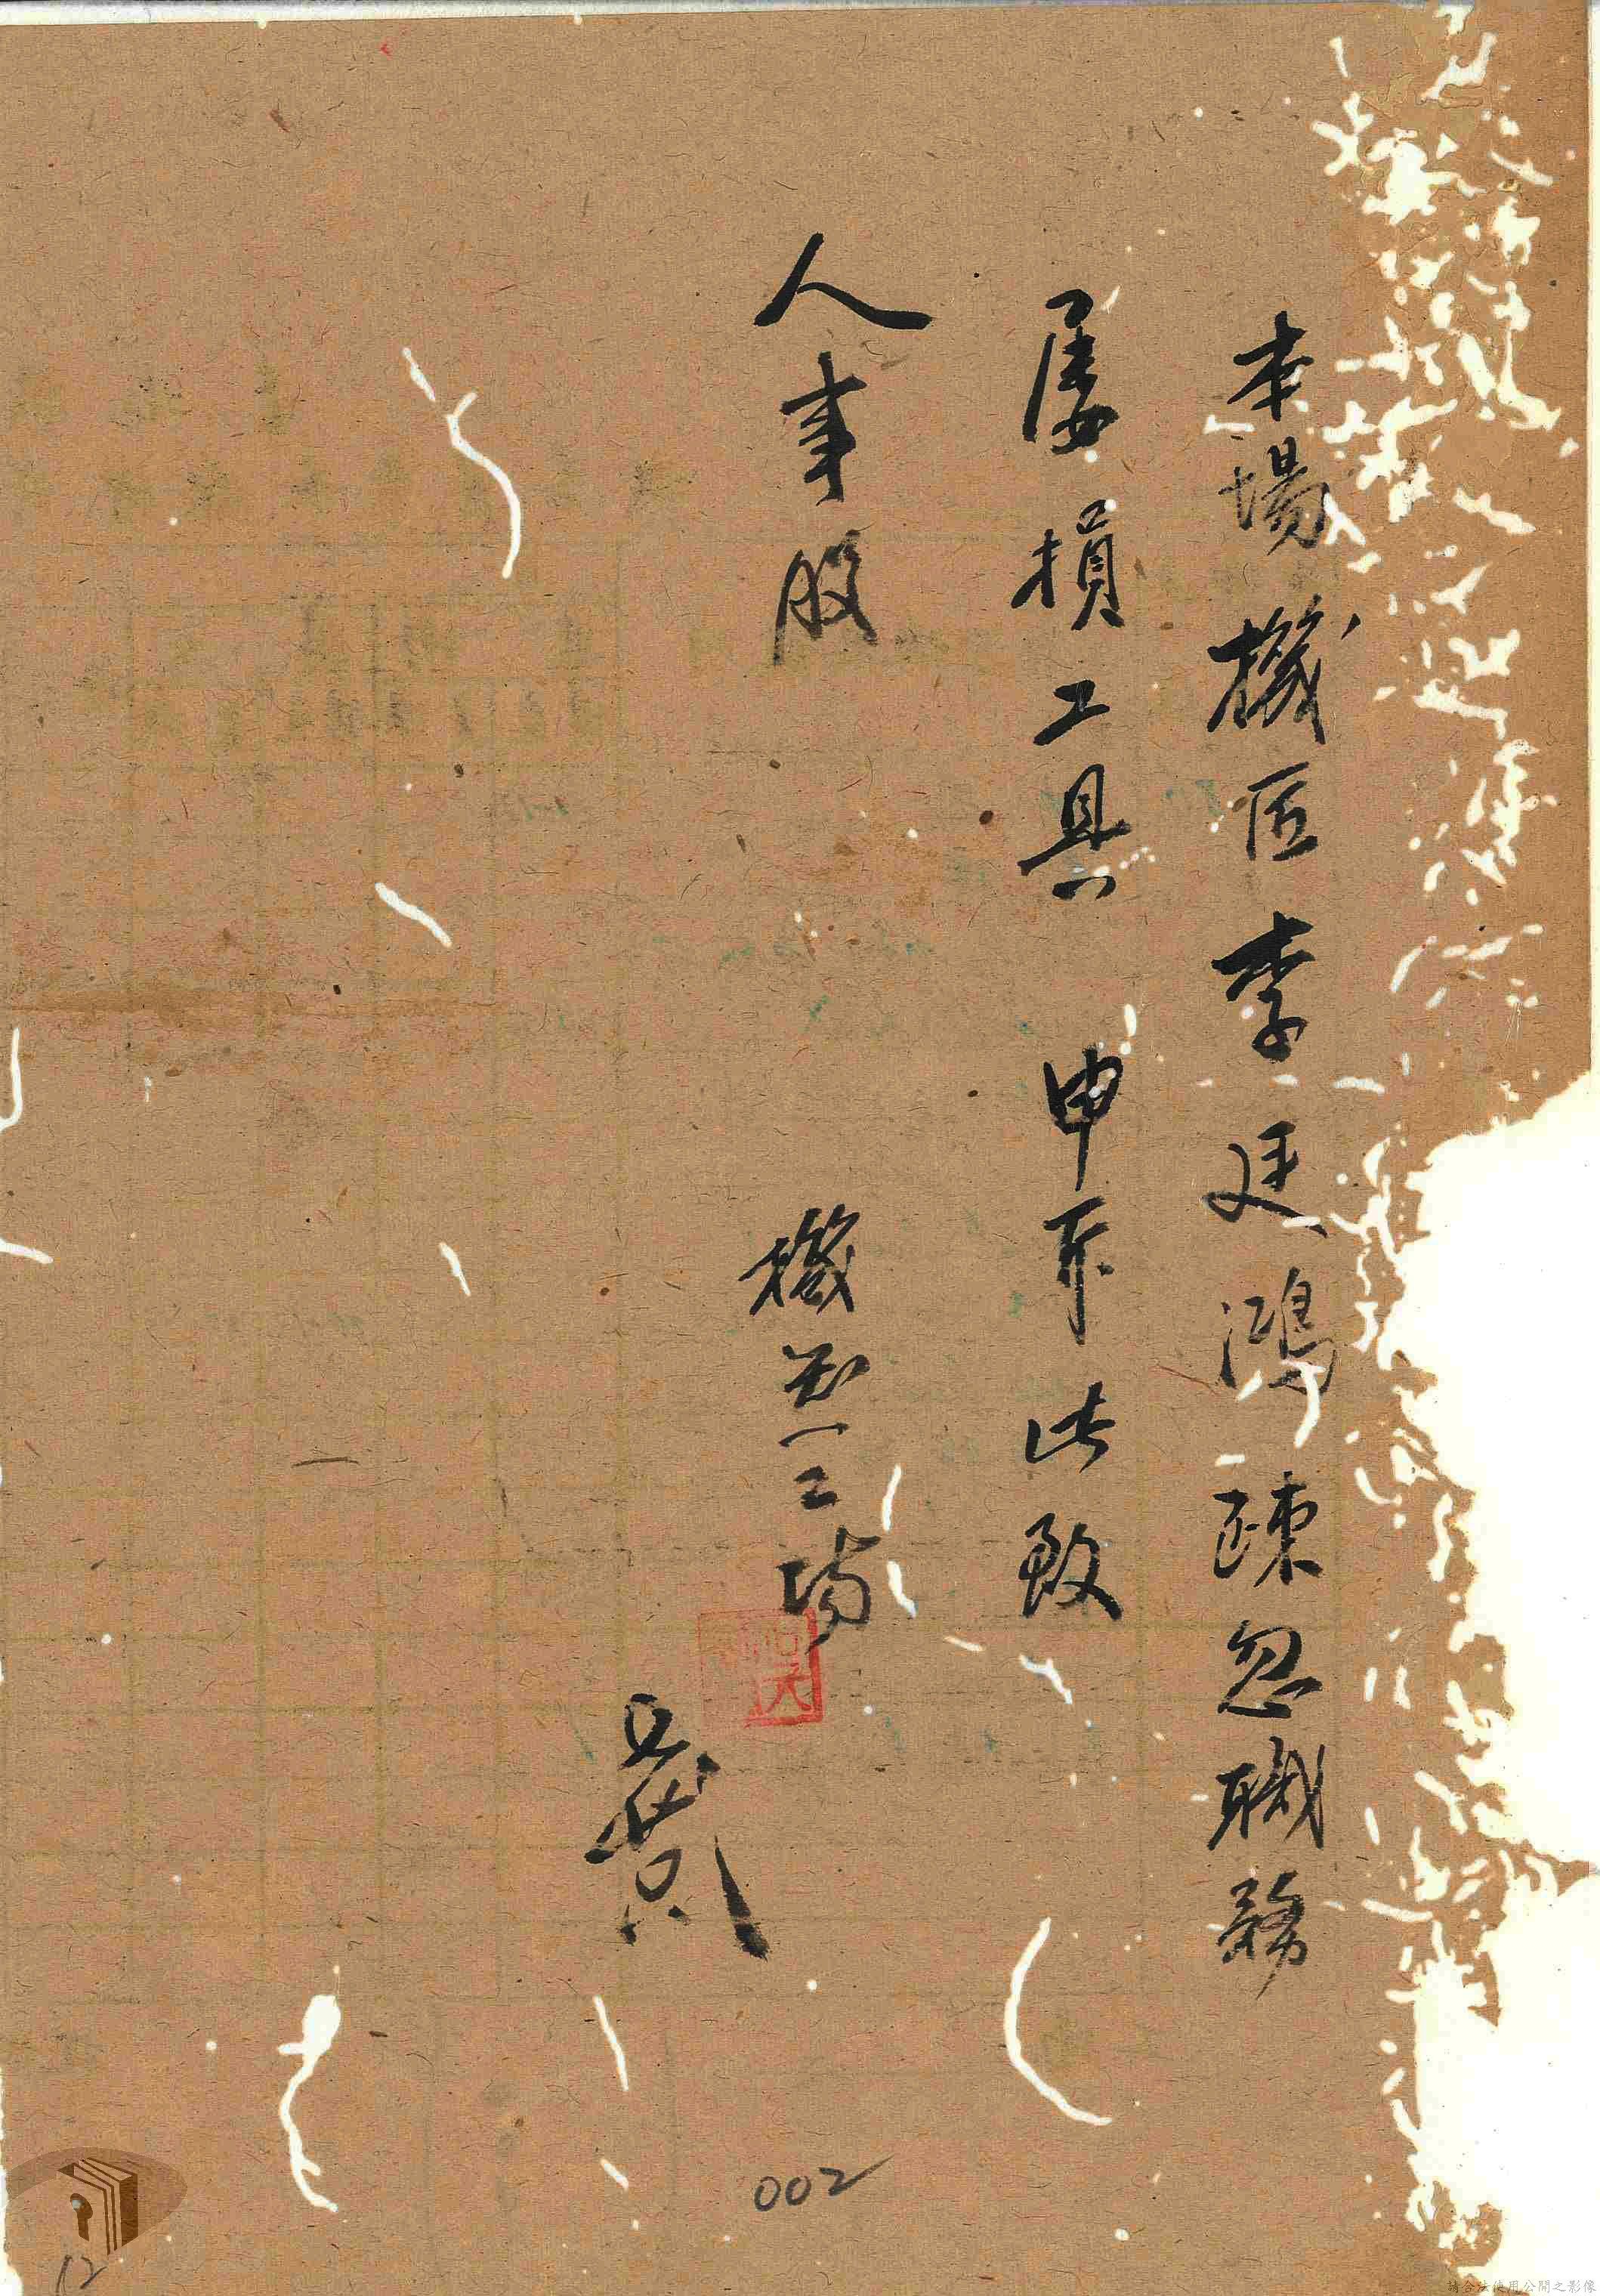 本場機匠李廷鴻疎忽職務
屢損工具 申斥此致
人事股
機第一工場
002
12
請合法使用公開之影像